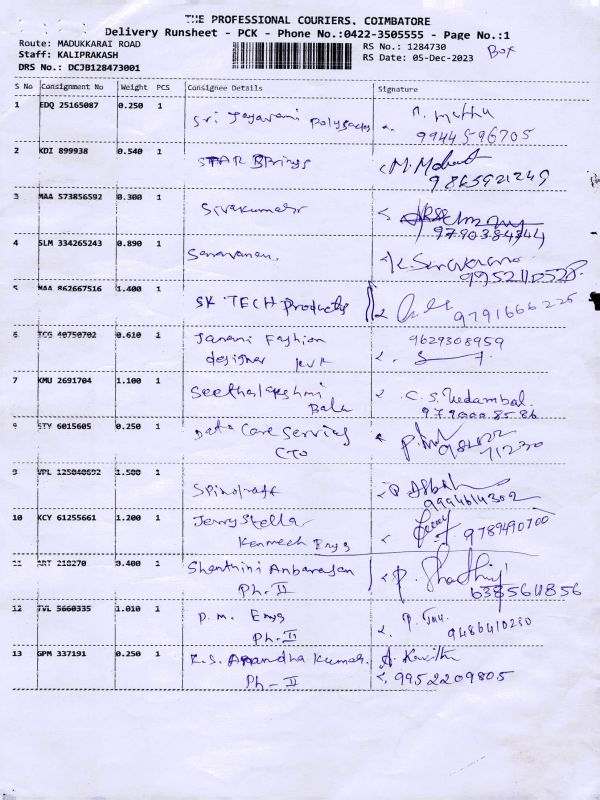 THE PROFESSIONAL COURIERS. COIMBATORE
Delivery Runsheet - PCK - Phone No.:0422-3505555 - Page No.:1
Route: MADUKKARAI ROAD
RS No.: 1284730
Box
Staff: KALIPRAKASH
RS Date: 05-Dec-2023
DRS No.: DCJB128473001
S No Consignment No Weight PCS Consignee Details Signature
1 EDQ 25165087 0.250 1
Sri Jayavani
9944596705
2 KDI 899938 0.540 1
STAR Springs
M.
9865921249
3 MAA 573856592 0.300 1
Sivakumar
9790384344
4 SLM 334265243 0.890 1
Saravanan.
9952110528
5 MAA 862667516 1.400 1
SK TECH Products
9791666225
6 TCG 40750702 0.610 1
Janani Fashion
9629308959
designer
7 KMU 2691704 1.100 1
Seethalakshmi
C. S. Vedambal.
Bala
9790008586
STY 6015605 0.250 1
Data Care Services
CTO
71230
VPL 125040692 1.500 1
9994614302
10 KCY 61255661 1.200 1
Jerry Stella
Kenmech Engg
9789490700
11 ART 218270 0.400 1
Shanthini Anbarasan
Ph. II
6385611856
12 TVL 5660335 1.010 1
P. M. Engg
Ph. II
9486410230
13 GPM 337191 0.250 1
K.S. Anandha Kumar.
A. Kavitha
Ph - II
9952209805